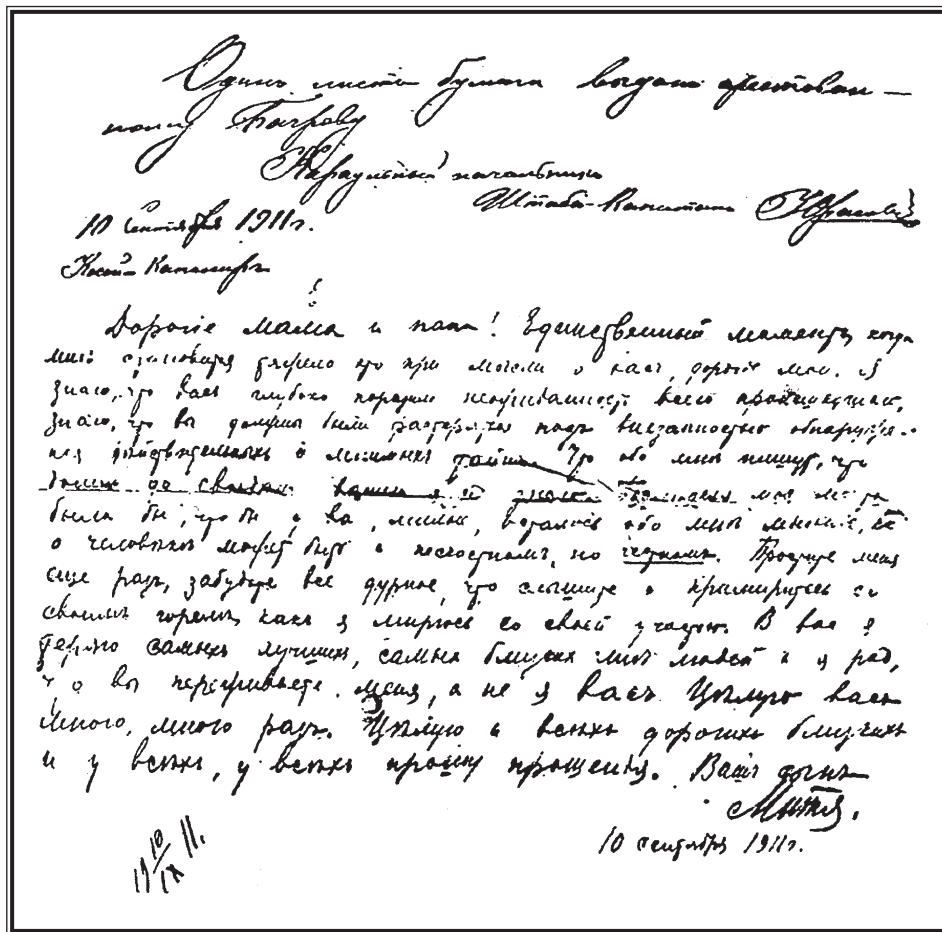 Одинъ листъ бумаги выданъ арестован-
ному Багрову
Караульный начальникъ
Штабсъ-Капитанъ
10 Сентября 1911 г.
Косой-Капониръ
Дорогіе мама и папа! Единственный моментъ, когда
мнѣ становится тяжело это при мысли о васъ, дорогіе мои. Я
знаю, что васъ глубоко поразила неожиданность всего происшедшаго,
знаю, что вы должны были растеряться подъ внезапностью обнаруже-
нія дѣйствительныхъ и мнимыхъ тайнъ. Что обо мнѣ пишутъ, что
моя мечта
была бы, чтобы у васъ, милые, осталось обо мнѣ мнѣніе, какъ
о человѣкѣ можетъ быть и несчастномъ, но честномъ. Простите меня
еще разъ, забудьте все дурное, что слышите и примиритесь со
своимъ горемъ, какъ я мирюсь со своей участью. В васъ я
теряю самыхъ лучшихъ, самыхъ близкихъ мнѣ людей и я радъ,
что вы переживаете меня, а не я васъ. Цѣлую васъ
много, много разъ. Цѣлую и всѣхъ дорогихъ близкихъ
и у всѣхъ, у всѣхъ прошу прощенія. Вашъ сынъ
Митя.
10 сентября 1911 г.
19 10/IX 11.